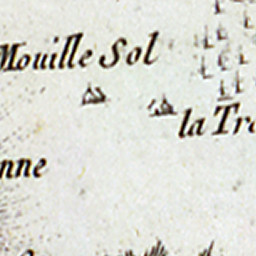 Mouille Sol
la Tr
nne